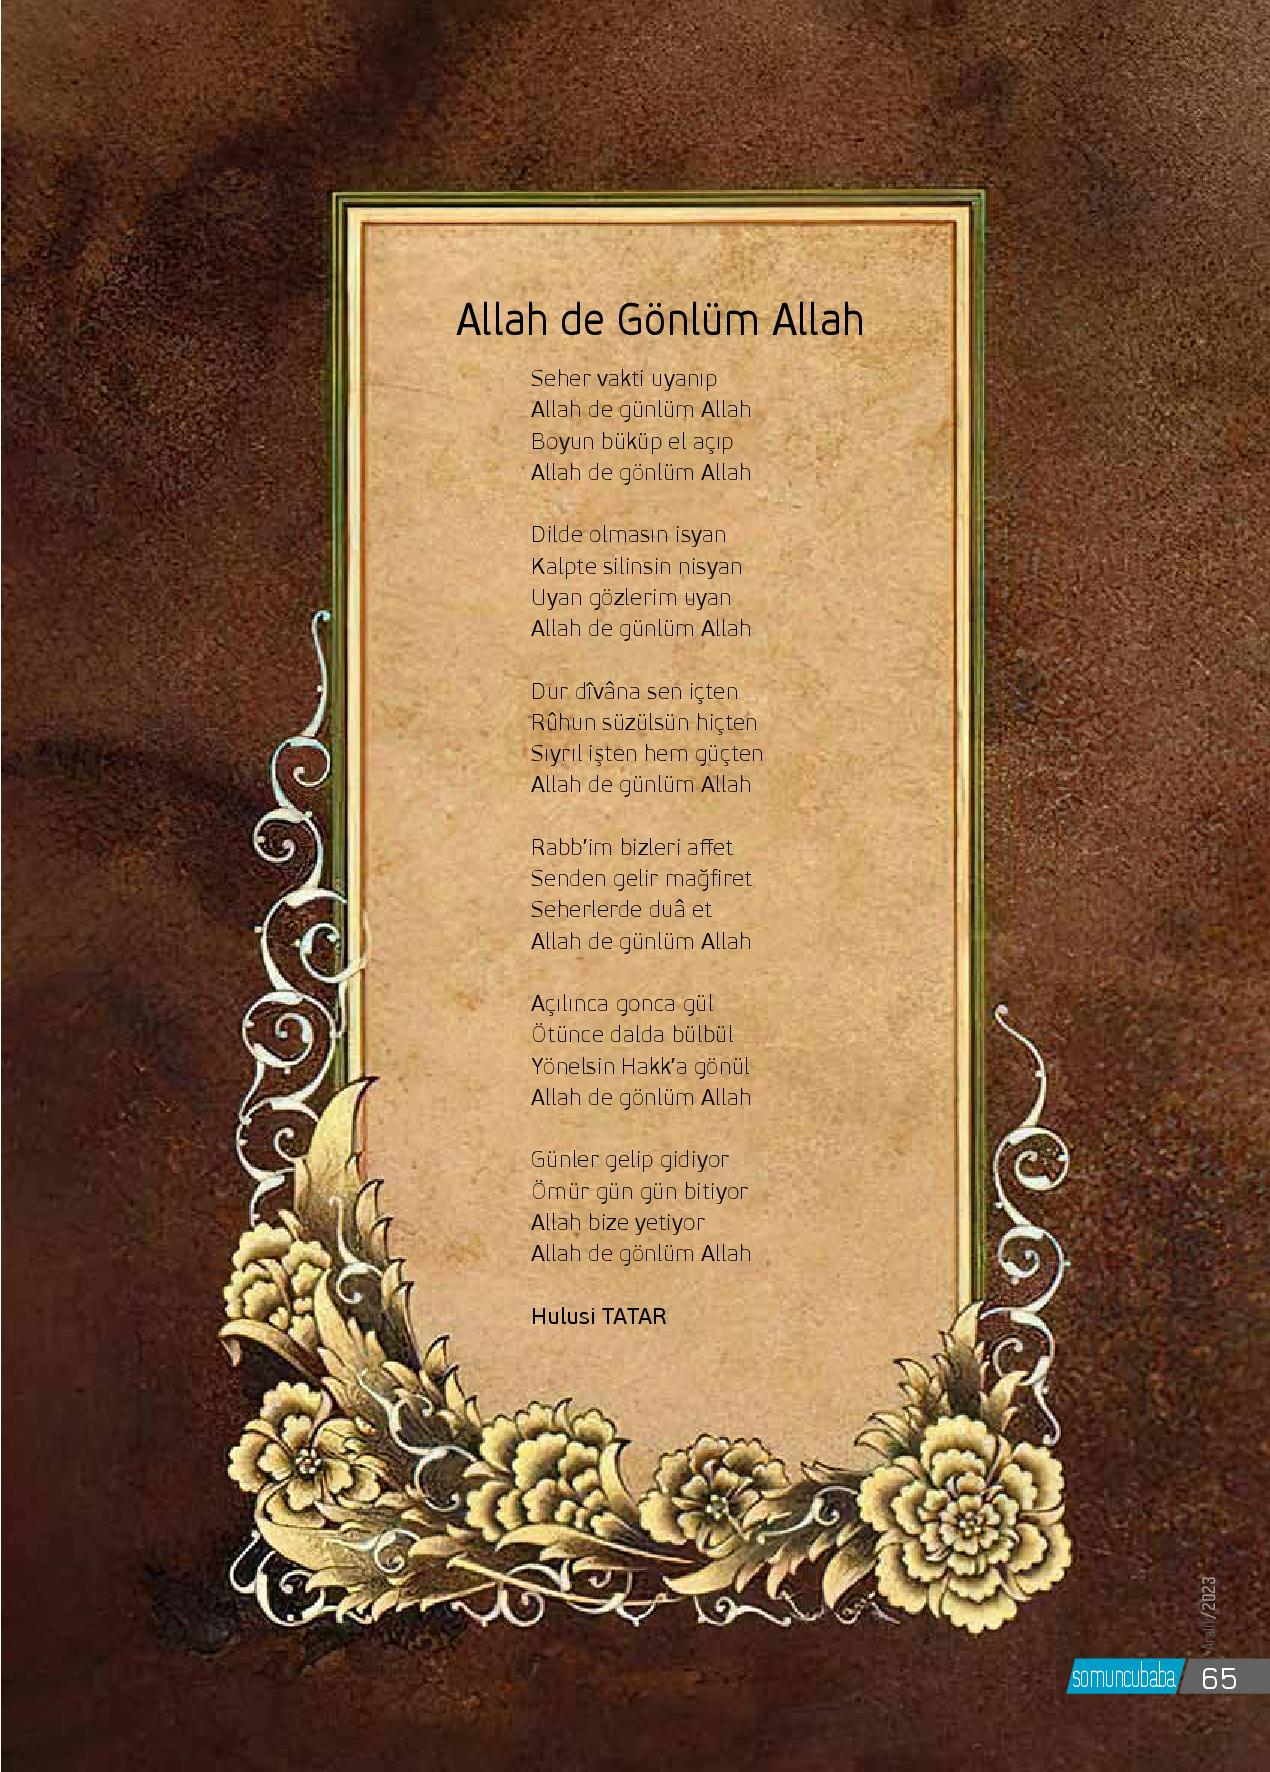 Allah de Gönlüm Allah
Seher vakti uyanıp
Allah de günlüm Allah
Boyun büküp el açıp
Allah de gönlüm Allah
Dilde olmasın isyan
Kalpte silinsin nisyan
Uyan gözlerim uyan
Allah de günlüm Allah
Dur dîvâna sen içten
Rûhun süzülsün hiçten
Sıyrıl işten hem güçten
Allah de günlüm Allah
Rabb'im bizleri affet
Senden gelir mağfiret
Seherlerde duâ et
Allah de günlüm Allah
Açılınca gonca gül
Ötünce dalda bülbül
Yönelsin Hakk'a gönül
Allah de gönlüm Allah
Günler gelip gidiyor
Ömür gün gün bitiyor
Allah bize yetiyor
Allah de gönlüm Allah
Hulusi TATAR
/2023
somuncubaba 65